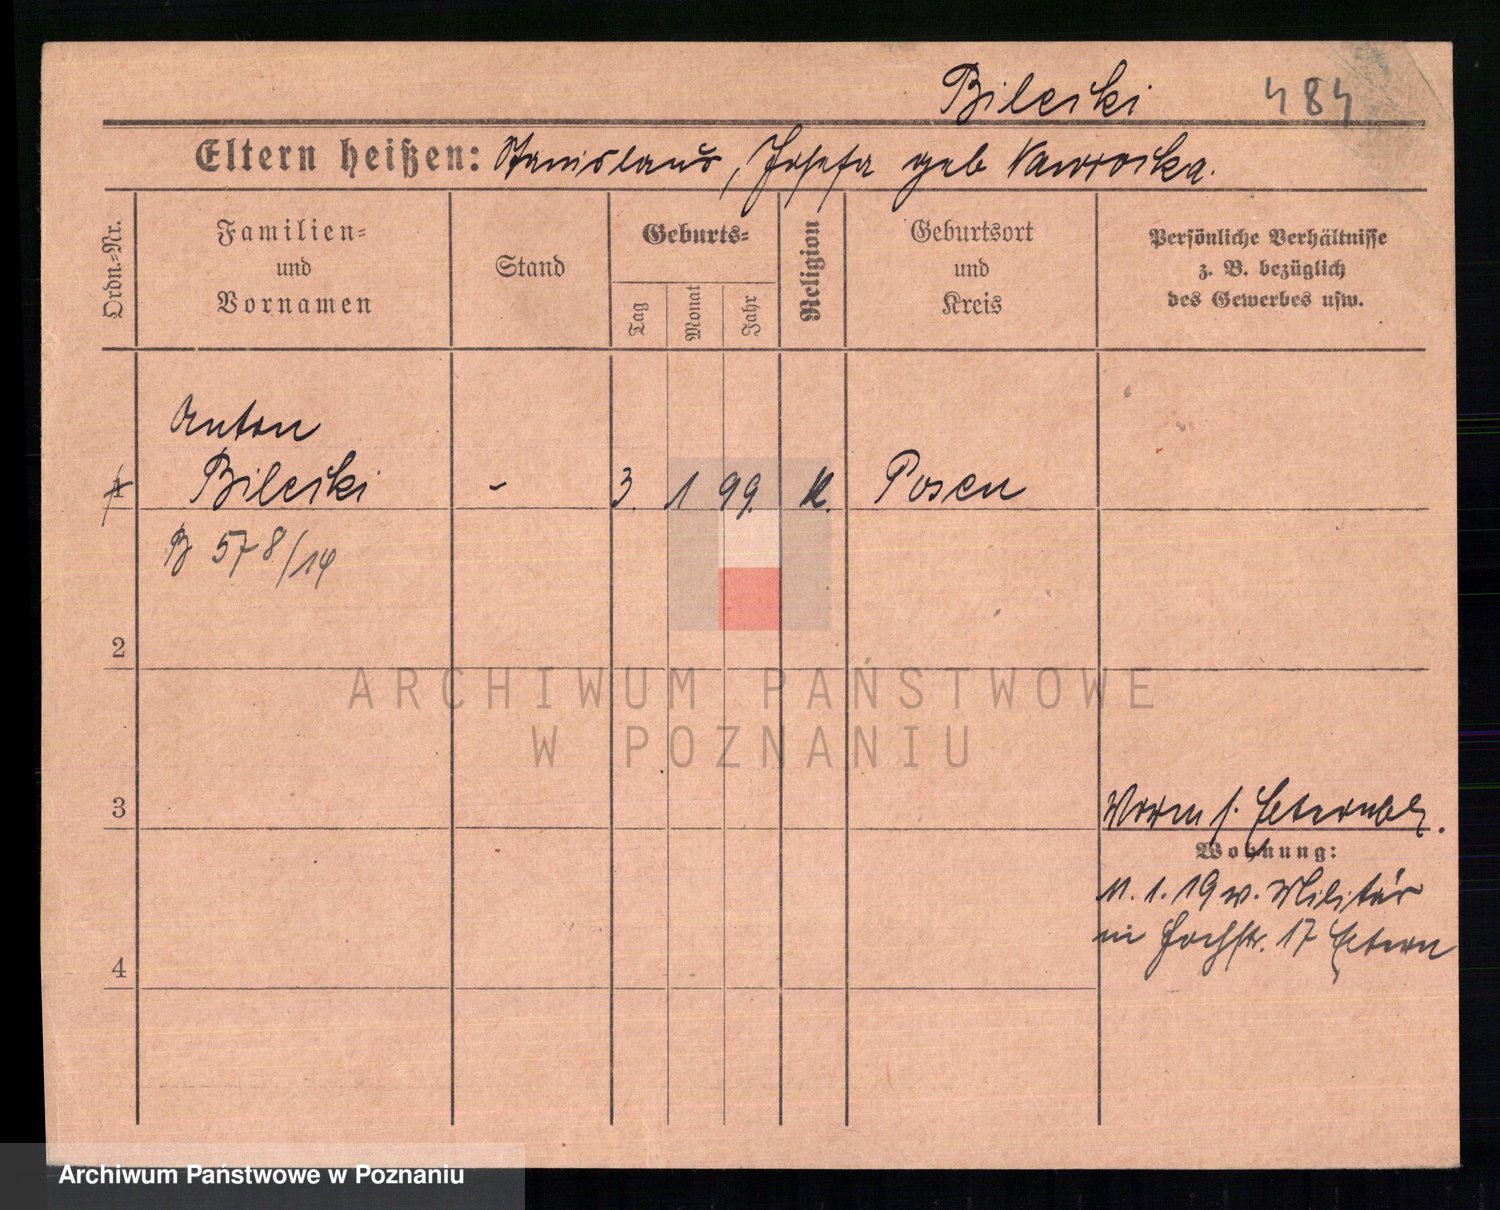 Bileski 484
Eltern heißen: Stanislaus, Josefa geb Nawroska.
Ordn.-Nr.
Familien-
und
Vornamen
Stand
Geburts-
Tag
Monat
Jahr
Religion
Geburtsort
und
Kreis
Persönliche Verhältnisse
z. B. bezüglich
des Gewerbes usw.
Anton
1 Bileski - 3. 1 99. K. Posen
B 578/14
2
3
Worm s.
Wohnung:
11. 1. 19 v. Militär
in Hochstr. 17 Eltern
4
ARCHIWUM PAŃSTWOWE
W POZNANIU
Archiwum Państwowe w Poznaniu